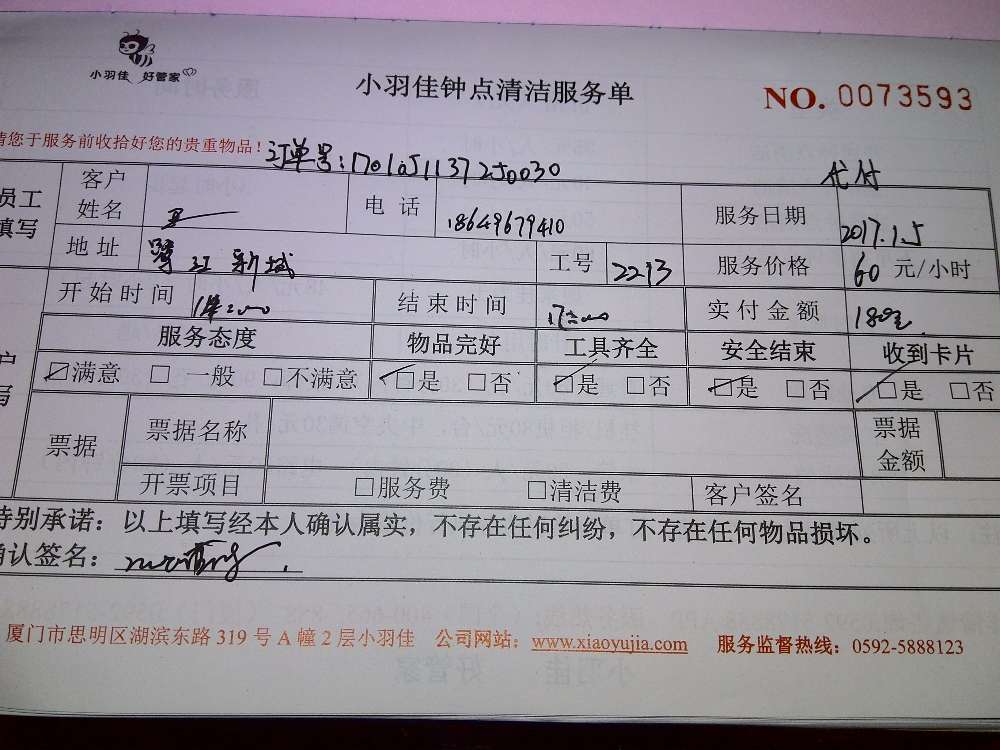 小羽佳 好管家
小羽佳钟点清洁服务单
NO. 0073593
请您于服务前收拾好您的贵重物品!
订单号:
代付
员工
填写
客户
姓名
王
电话
18649679410
服务日期
2017.1.5
地址
鹭江新城
工号
2213
服务价格
60 元/小时
开始时间
结束时间
17:00
实付金额
180元
服务态度
物品完好
工具齐全
安全结束
收到卡片
满意 □ 一般 □不满意
□是 □否
□是 □否
□是 □否
□是 □否
票据
票据名称
票据
金额
开票项目
□服务费 □清洁费
客户签名
特别承诺:以上填写经本人确认属实,不存在任何纠纷,不存在任何物品损坏。
确认签名:
厦门市思明区湖滨东路 319 号 A 幢 2 层小羽佳 公司网站:www.xiaoyujia.com 服务监督热线:0592-5888123